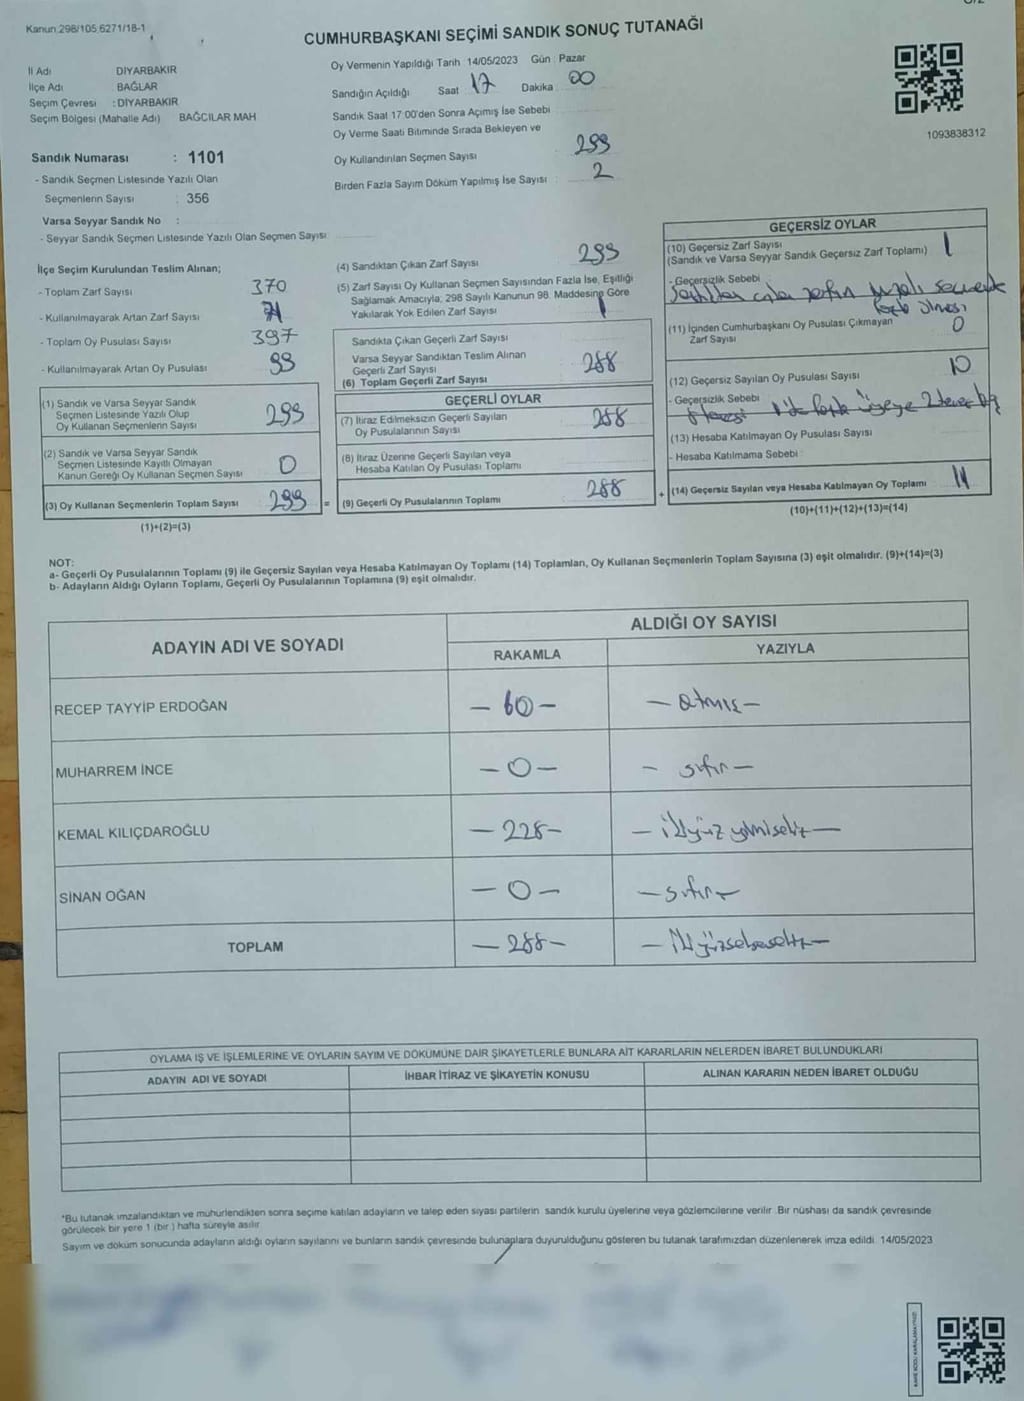 Kanun 298/105,6271/18-1
CUMHURBAŞKANI SEÇİMİ SANDIK SONUÇ TUTANAĞI
İl Adı DİYARBAKIR
İlçe Adı BAĞLAR
Seçim Çevresi : DİYARBAKIR
Seçim Bölgesi (Mahalle Adı) BAĞCILAR MAH
Sandık Numarası : 1101
- Sandık Seçmen Listesinde Yazılı Olan
Seçmenlerin Sayısı : 356
Varsa Seyyar Sandık No :
- Seyyar Sandık Seçmen Listesinde Yazılı Olan Seçmen Sayısı
Oy Vermenin Yapıldığı Tarih 14/05/2023 Gün : Pazar
Sandığın Açıldığı Saat 17 Dakika 00
Sandık Saat 17:00'den Sonra Açımış İse Sebebi
Oy Verme Saati Bitiminde Sırada Bekleyen ve
Oy Kullandırılan Seçmen Sayısı 299
Birden Fazla Sayım Döküm Yapılmış İse Sayısı : 2
1093838312
İlçe Seçim Kurulundan Teslim Alınan;
- Toplam Zarf Sayısı 370
- Kullanılmayarak Artan Zarf Sayısı 71
- Toplam Oy Pusulası Sayısı 397
- Kullanılmayarak Artan Oy Pusulası 99
(1) Sandık ve Varsa Seyyar Sandık
Seçmen Listesinde Yazılı Olup
Oy Kullanan Seçmenlerin Sayısı 299
(2) Sandık ve Varsa Seyyar Sandık
Seçmen Listesinde Kayıtlı Olmayan
Kanun Gereği Oy Kullanan Seçmen Sayısı 0
(3) Oy Kullanan Seçmenlerin Toplam Sayısı 299 =
(1)+(2)=(3)
(4) Sandıktan Çıkan Zarf Sayısı 299
(5) Zarf Sayısı Oy Kullanan Seçmen Sayısından Fazla İse, Eşitliği
Sağlamak Amacıyla, 298 Sayılı Kanunun 98. Maddesine Göre
Yakılarak Yok Edilen Zarf Sayısı
Sandıkta Çıkan Geçerli Zarf Sayısı
Varsa Seyyar Sandıktan Teslim Alınan
Geçerli Zarf Sayısı
(6) Toplam Geçerli Zarf Sayısı 288
GEÇERLİ OYLAR
(7) İtiraz Edilmeksizin Geçerli Sayılan
Oy Pusulalarının Sayısı 288
(8) İtiraz Üzerine Geçerli Sayılan veya
Hesaba Katılan Oy Pusulası Toplamı
(9) Geçerli Oy Pusulalarının Toplamı 288 +
GEÇERSİZ OYLAR
(10) Geçersiz Zarf Sayısı
(Sandık ve Varsa Seyyar Sandık Geçersiz Zarf Toplamı) 1
- Geçersizlik Sebebi
olması
(11) İçinden Cumhurbaşkanı Oy Pusulası Çıkmayan
Zarf Sayısı 0
(12) Geçersiz Sayılan Oy Pusulası Sayısı 10
- Geçersizlik Sebebi
(13) Hesaba Katılmayan Oy Pusulası Sayısı
- Hesaba Katılmama Sebebi
(14) Geçersiz Sayılan veya Hesaba Katılmayan Oy Toplamı 11
(10)+(11)+(12)+(13)=(14)
NOT:
a- Geçerli Oy Pusulalarının Toplamı (9) ile Geçersiz Sayılan veya Hesaba Katılmayan Oy Toplamı (14) Toplamları, Oy Kullanan Seçmenlerin Toplam Sayısına (3) eşit olmalıdır. (9)+(14)=(3)
b- Adayların Aldığı Oyların Toplamı, Geçerli Oy Pusulalarının Toplamına (9) eşit olmalıdır.
ADAYIN ADI VE SOYADI
ALDIĞI OY SAYISI
RAKAMLA YAZIYLA
RECEP TAYYİP ERDOĞAN - 60 - - atmış -
MUHARREM İNCE - 0 - - sıfır -
KEMAL KILIÇDAROĞLU - 228 - - ikiyüz yirmisekiz -
SİNAN OĞAN - 0 - - sıfır -
TOPLAM - 288 - - ikiyüzseksensekiz -
OYLAMA İŞ VE İŞLEMLERİNE VE OYLARIN SAYIM VE DÖKÜMÜNE DAİR ŞİKAYETLERLE BUNLARA AİT KARARLARIN NELERDEN İBARET BULUNDUKLARI
ADAYIN ADI VE SOYADI İHBAR İTİRAZ VE ŞİKAYETİN KONUSU ALINAN KARARIN NEDEN İBARET OLDUĞU
*Bu tutanak imzalandıktan ve mühürlendikten sonra seçime katılan adayların ve talep eden siyasi partilerin sandık kurulu üyelerine veya gözlemcilerine verilir. Bir nüshası da sandık çevresinde
görülecek bir yere 1 (bir ) hafta süreyle asılır.
Sayım ve döküm sonucunda adayların aldığı oyların sayılarını ve bunların sandık çevresinde bulunanlara duyurulduğunu gösteren bu tutanak tarafımızdan düzenlenerek imza edildi. 14/05/2023